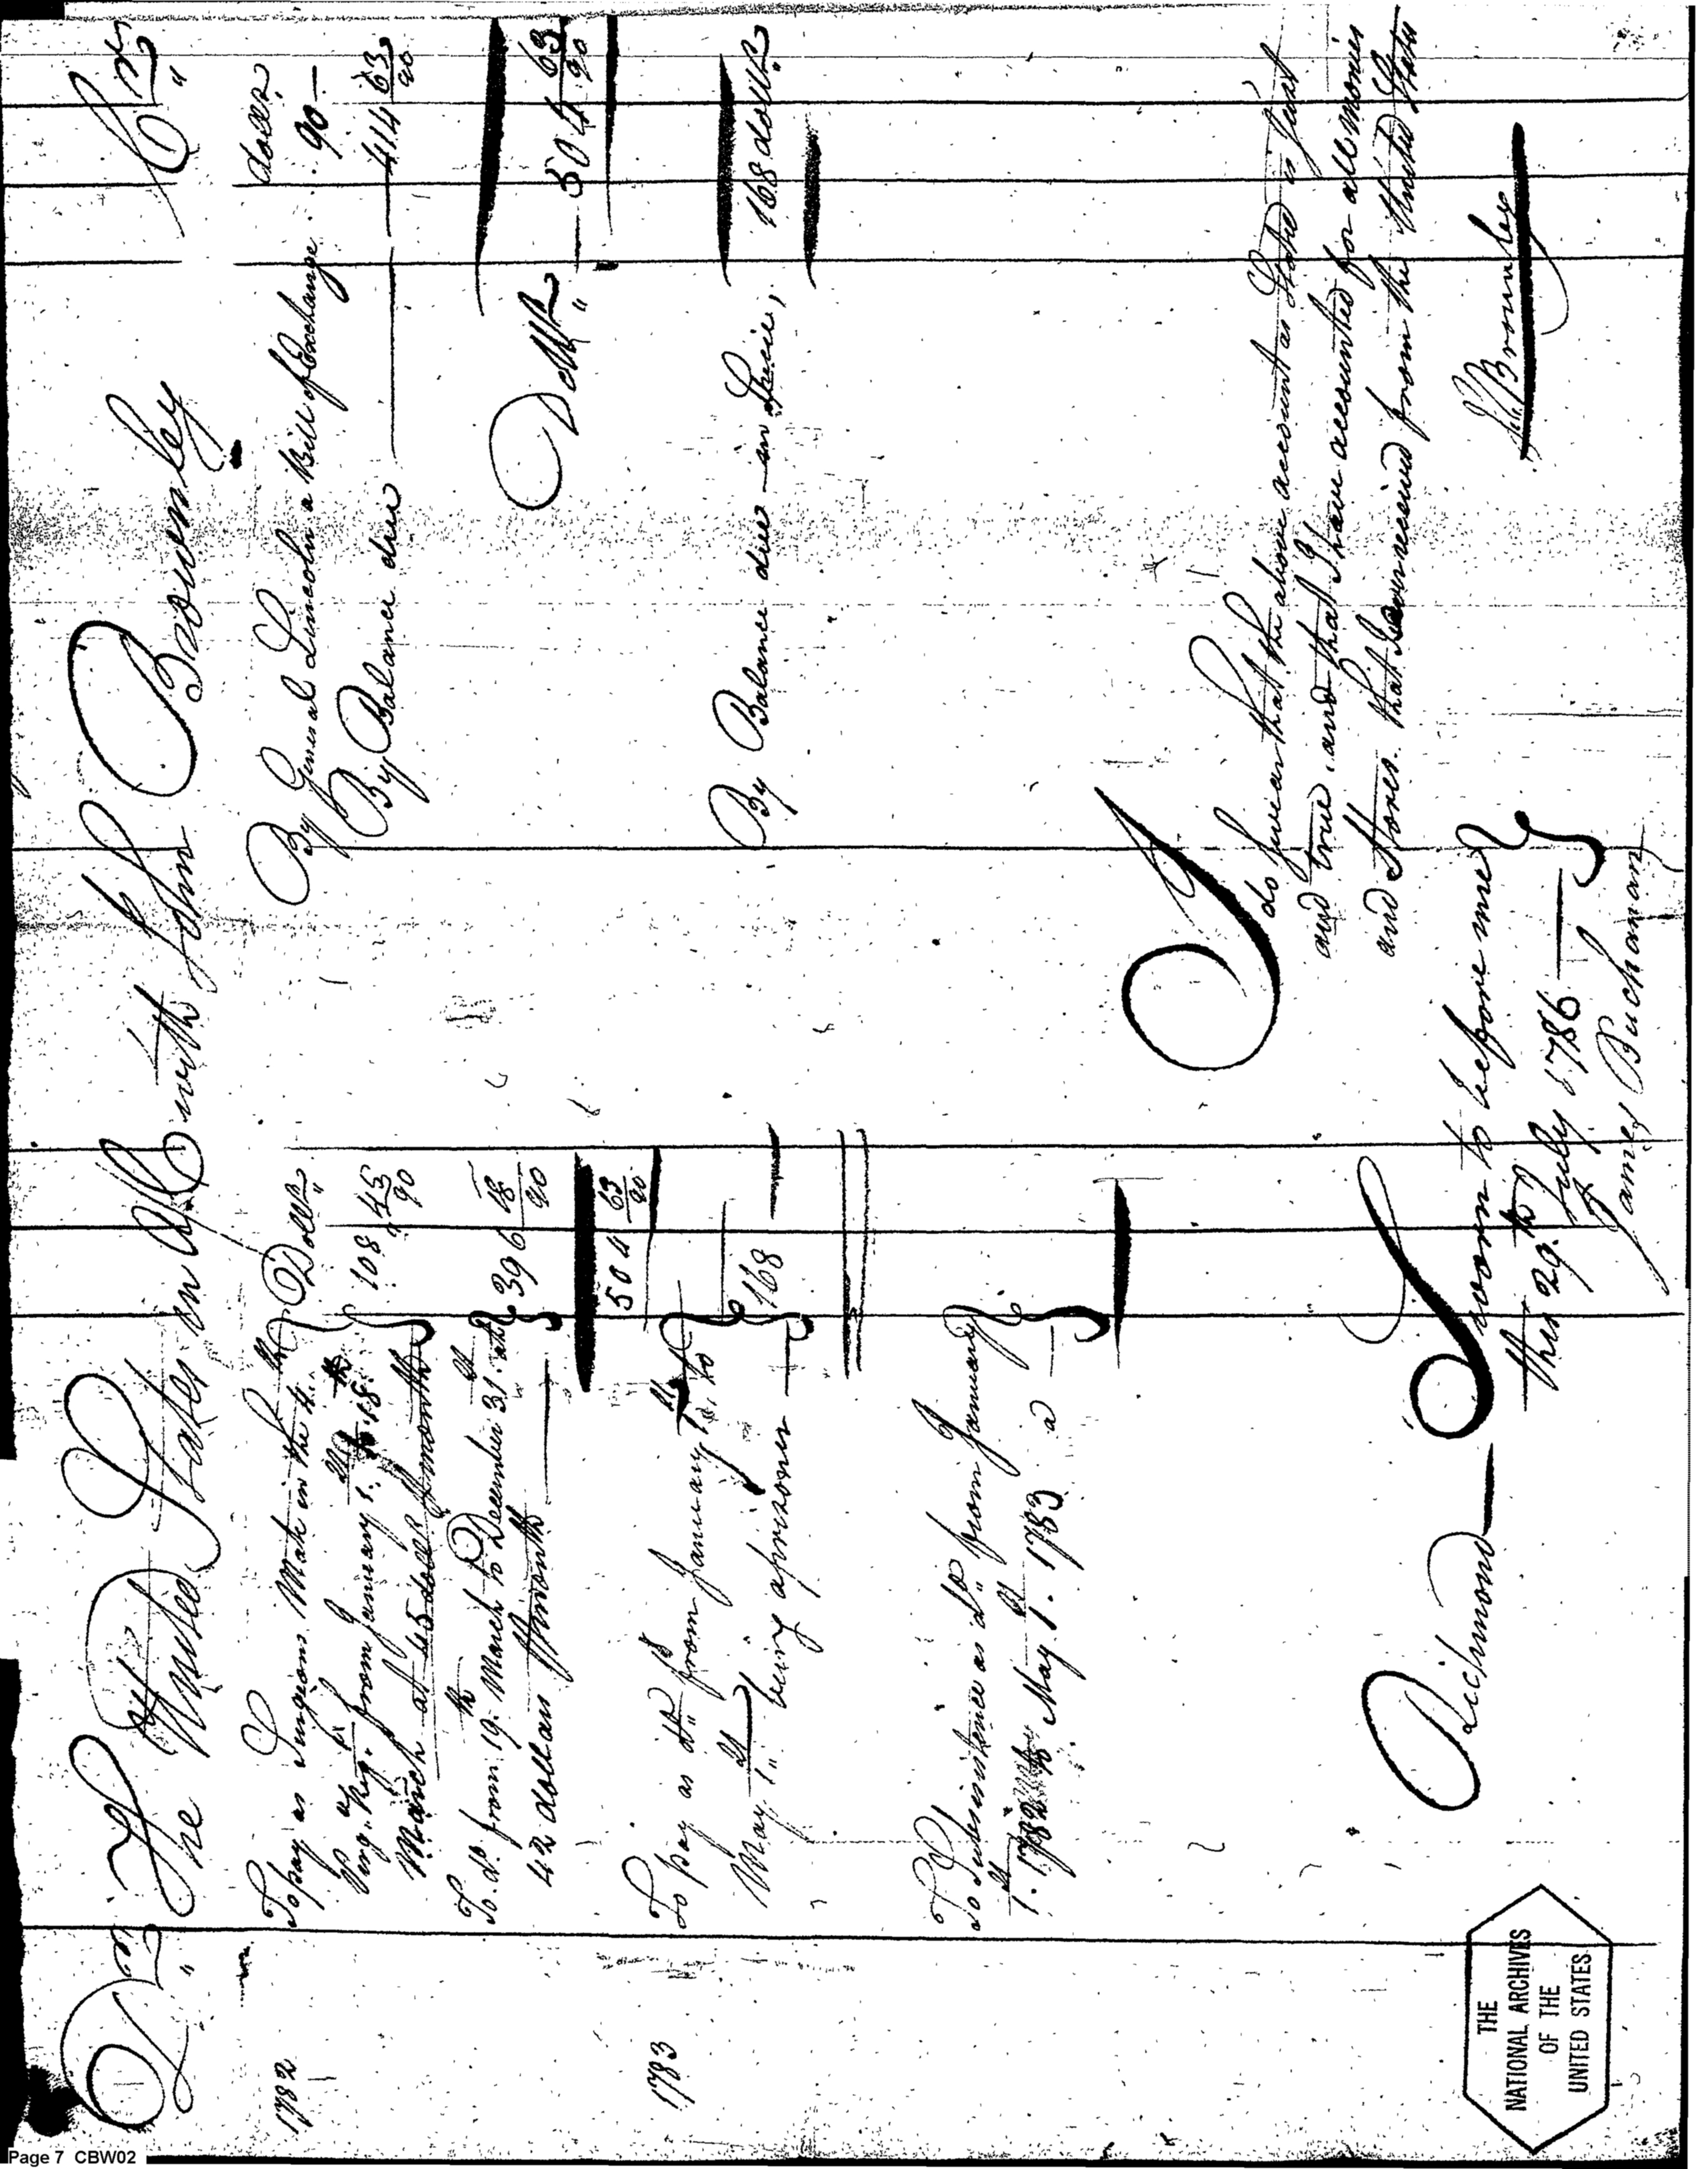 Dr The United States in A/C with John Brownley Cr
1782
To pay as Surgeons Mate in the 4th
Virga Regt from January 1st to 18th
March at 45 dolls p month
Dolls
108 45/90
To do from 19th March to December 31st at
42 dollars p month
396 18/90
504 63/90
1783
To pay as do from January 1st to
May 1st being a prisoner
168
To Subsistence as do from January
1st 1782 to May 1st 1783 a
By General Lincoln a Bill of Exchange
dollrs
90
By Balance due
414 63/90
Dollrs 504 63/90
By Balance due in Specie,
168 dollrs
I do swear that the above account as Stated is Just
and true and that I have accounted for all monies
and Stores that I ever received from the United States
Jn Brownley
Richmond
Sworn to before me
this 29th July 1786
James Buchanan
THE
NATIONAL ARCHIVES
OF THE
UNITED STATES
Page 7 CBW02